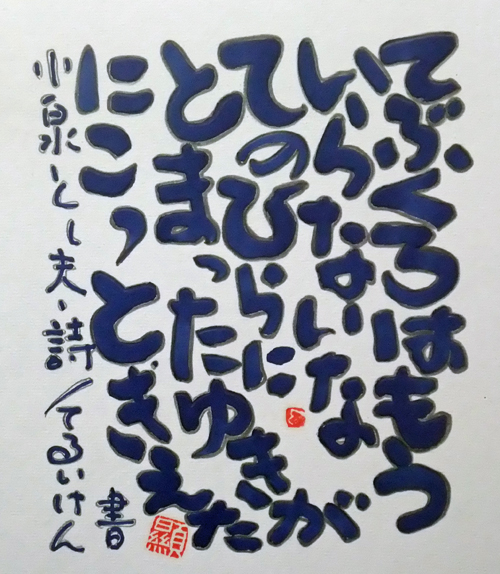 てぶくろはもう
いらないな
てのひらに
とまったゆきが
にこっときえた
小泉とし夫・詩／てるいけん
書
顯